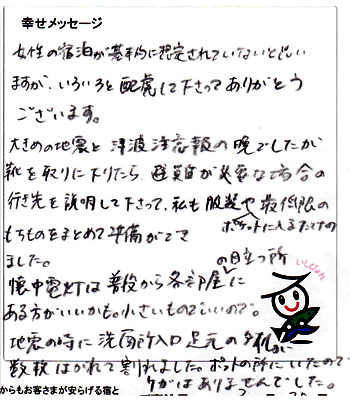 幸せメッセージ
女性の宿泊が基本的に想定されていないと思い
ますが、いろいろと配慮して下さってありがとう
ございます。
大きめの地震と津波注意報の晩でしたが
靴を取りに下りたら、避難が必要な場合の
行き先を説明して下さって、私も服装や最低限の
ポケットに入るだけの
もちものをまとめて準備ができ
ました。
の目立つ所
懐中電灯は普段から各部屋に
ある方がいいかも。小さいものでいいので。
地震の時に洗面所入口足元のタイルが
数枚はがれて割れました。ポットの所にいたので
ケガはありませんでした。
からもお客さまが安らげる宿と